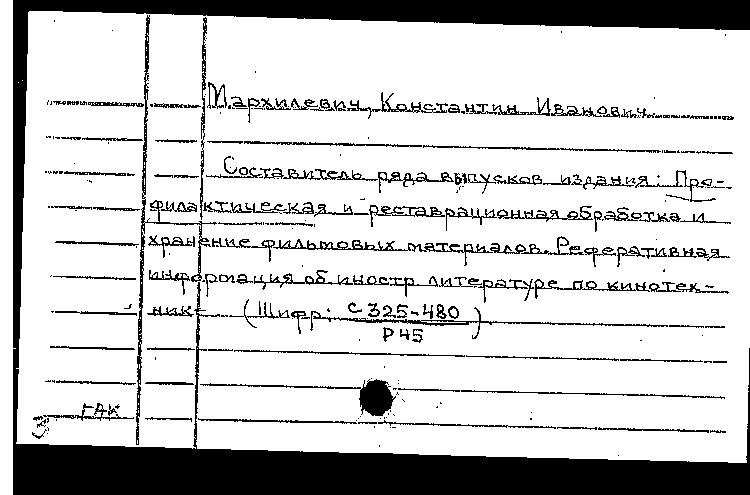 Мархилевич, Константин Иванович.
Составитель ряда выпусков издания: Про-
филактическая и реставрационная обработка и
хранение фильмовых материалов. Реферативная
информация об иностр литературе по кинотех-
нике (Шифр: С325-480
Р45)
ГАК